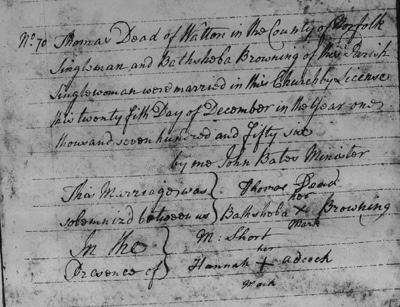 No 70 Thomas Dead of Watton in the County of Norfolk
Singleman and Bathsheba Browning of this Parish
Singlewoman were married in this Church by License
this twenty fifth Day of December in the Year one
thousand seven hundred and fifty six
by me John Bates Minister
This Marriage was } Thomas Dead
solemnized between us } Bathsheba her X Mark Browning
In the } M: Short
Presence of } Hannah her + Mark Adcock